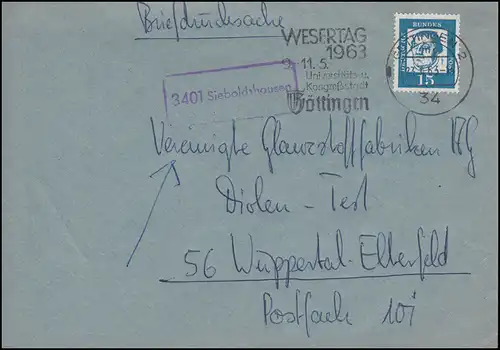 Briefdrucksache
WESERTAG
1963
9.-11.5.
Universitäts-u.
Kongreßstadt
Göttingen
DEUTSCHE BUNDES
15
34
3401 Sieboldshausen
Vereinigte Glanzstoffabriken AG
Diolen - Test
56 Wuppertal-Elberfeld
Postfach 10i